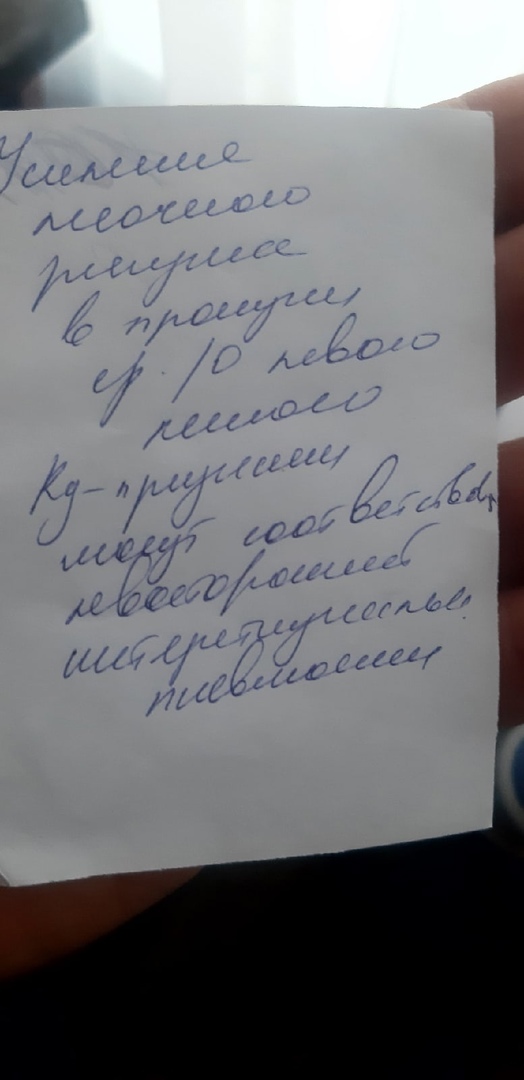 Усиление
легочного
рисунка
в проекции
ср. /0 левого
легкого
Rg-признаки
могут соответствов.
левосторонней
интерстициальн.
пневмонии